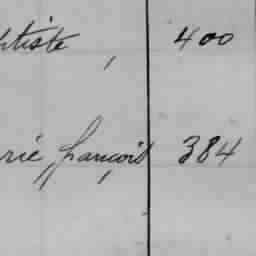 ptiste, 400
rie françois 384